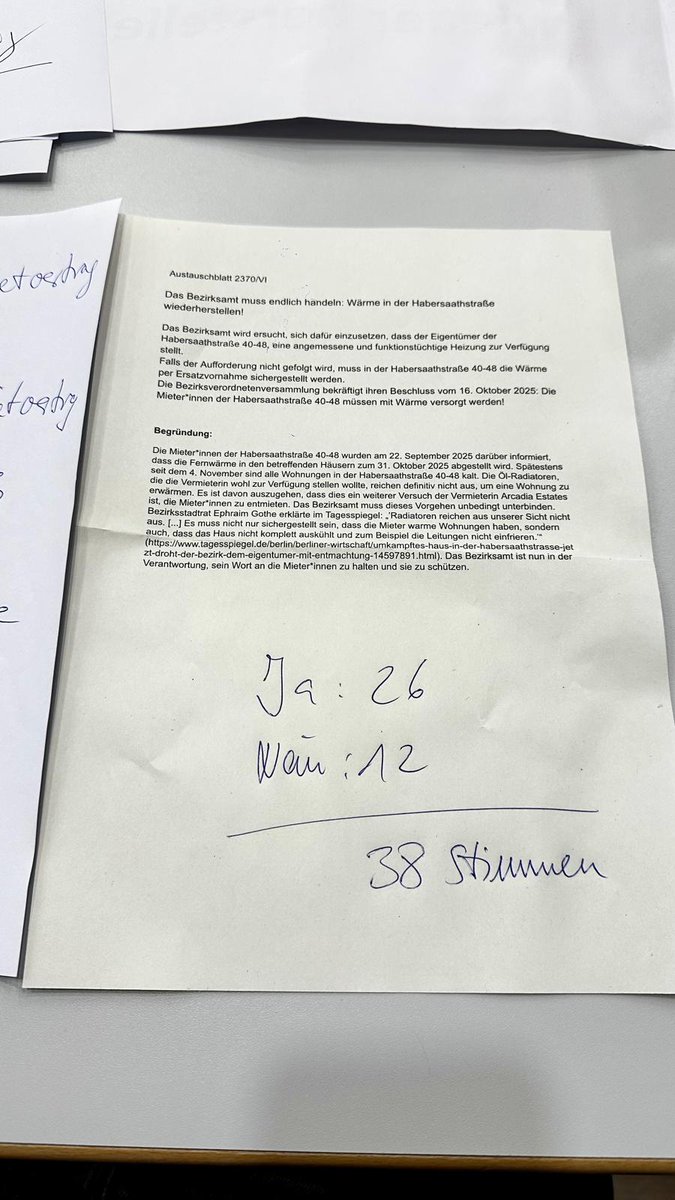 Austauschblatt 2370/VI
Das Bezirksamt muss endlich handeln: Wärme in der Habersaathstraße
wiederherstellen!
Das Bezirksamt wird ersucht, sich dafür einzusetzen, dass der Eigentümer der
Habersaathstraße 40-48, eine angemessene und funktionstüchtige Heizung zur Verfügung
stellt.
Falls der Aufforderung nicht gefolgt wird, muss in der Habersaathstraße 40-48 die Wärme
per Ersatzvornahme sichergestellt werden.
Die Bezirksverordnetenversammlung bekräftigt ihren Beschluss vom 16. Oktober 2025: Die
Mieter*innen der Habersaathstraße 40-48 müssen mit Wärme versorgt werden!
Begründung:
Die Mieter*innen der Habersaathstraße 40-48 wurden am 22. September 2025 darüber informiert,
dass die Fernwärme in den betreffenden Häusern zum 31. Oktober 2025 abgestellt wird. Spätestens
seit dem 4. November sind alle Wohnungen in der Habersaathstraße 40-48 kalt. Die Öl-Radiatoren,
die die Vermieterin wohl zur Verfügung stellen wollte, reichen definitiv nicht aus, um eine Wohnung zu
erwärmen. Es ist davon auszugehen, dass dies ein weiterer Versuch der Vermieterin Arcadia Estates
ist, die Mieter*innen zu entmieten. Das Bezirksamt muss dieses Vorgehen unbedingt unterbinden.
Bezirksstadtrat Ephraim Gothe erklärte im Tagesspiegel: „Radiatoren reichen aus unserer Sicht nicht
aus. [...] Es muss nicht nur sichergestellt sein, dass die Mieter warme Wohnungen haben, sondern
auch, dass das Haus nicht komplett auskühlt und zum Beispiel die Leitungen nicht einfrieren.'"
(https://www.tagesspiegel.de/berlin/berliner-wirtschaft/umkampftes-haus-in-der-habersaathstrasse-jet
zt-droht-der-bezirk-dem-eigentumer-mit-entmachtung-14597891.html). Das Bezirksamt ist nun in der
Verantwortung, sein Wort an die Mieter*innen zu halten und sie zu schützen.
Ja: 26
Nein: 12
38 Stimmen